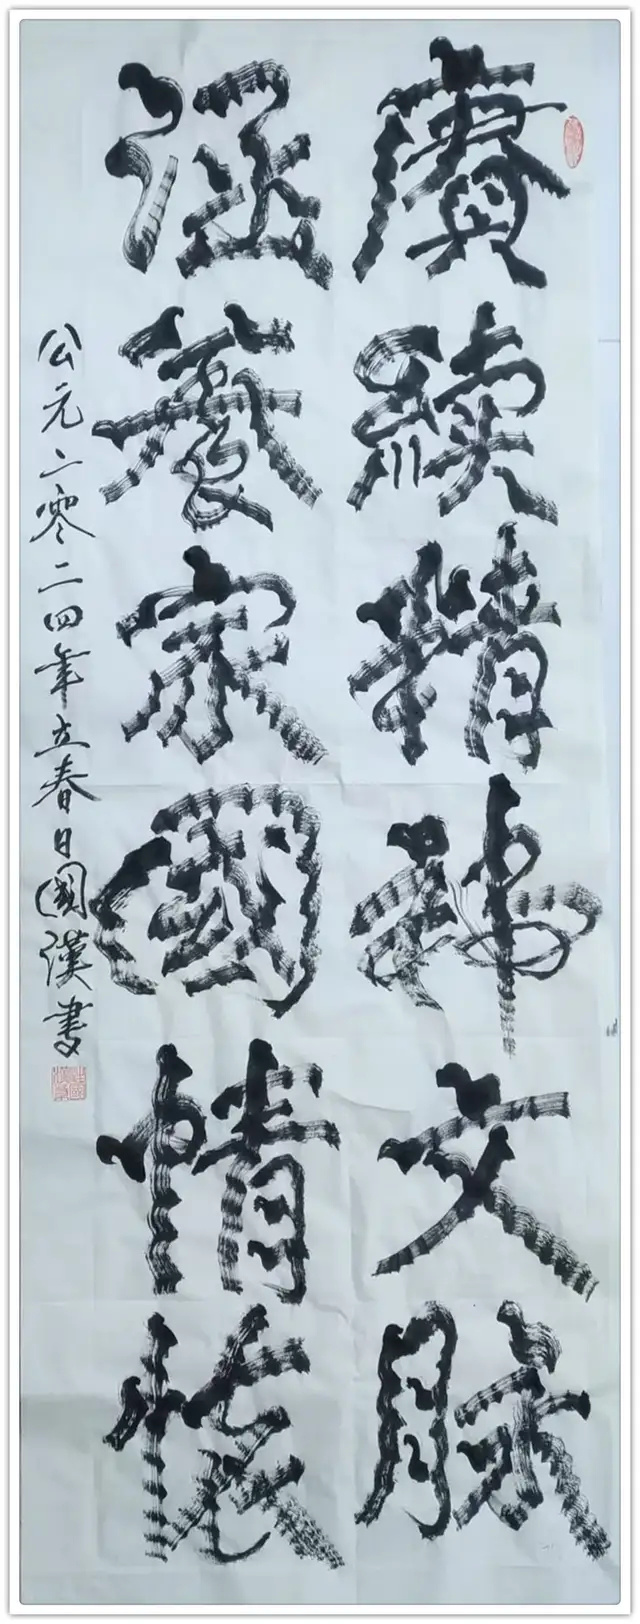 赓續精神文脉
涵養家國情懷
公元二零二四年立春日國漢書